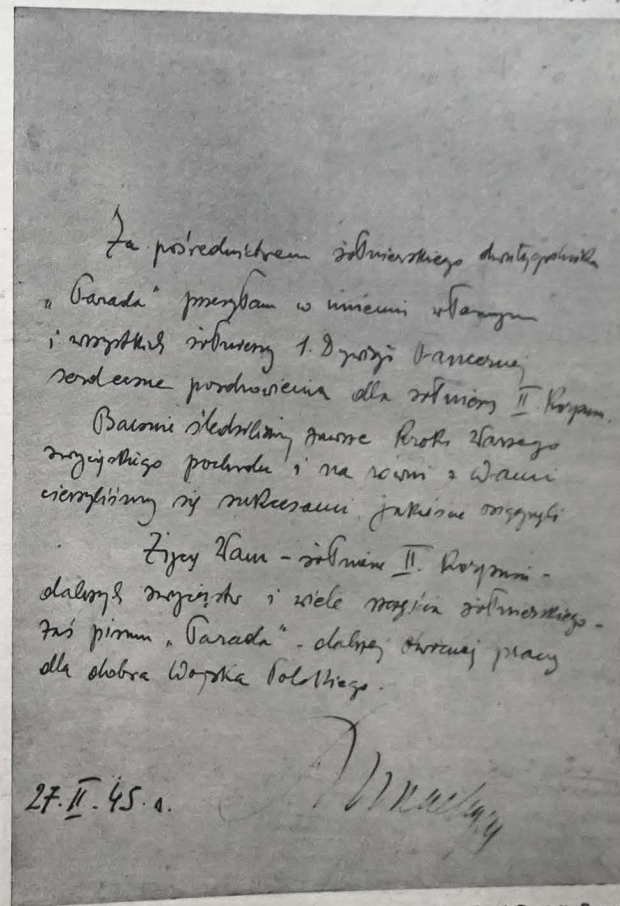 Za pośrednictwem żołnierskiego dwutygodnika
„Parada" przesyłam w imieniu własnym
i wszystkich żołnierzy 1. Dywizji Pancernej
serdeczne pozdrowienia dla żołnierzy II Korpusu.
Bacznie śledziliśmy zawsze kroki Waszego
zwycięskiego pochodu i na równi z Wami
cieszyliśmy się sukcesami, jakieście osiągnęli
Życzę Wam – żołnierze II. Korpusu –
dalszych zwycięstw i wiele szczęścia żołnierskiego –
zaś pismu „Parada" – dalszej owocnej pracy
dla dobra Wojska Polskiego.
27.II.45.r.